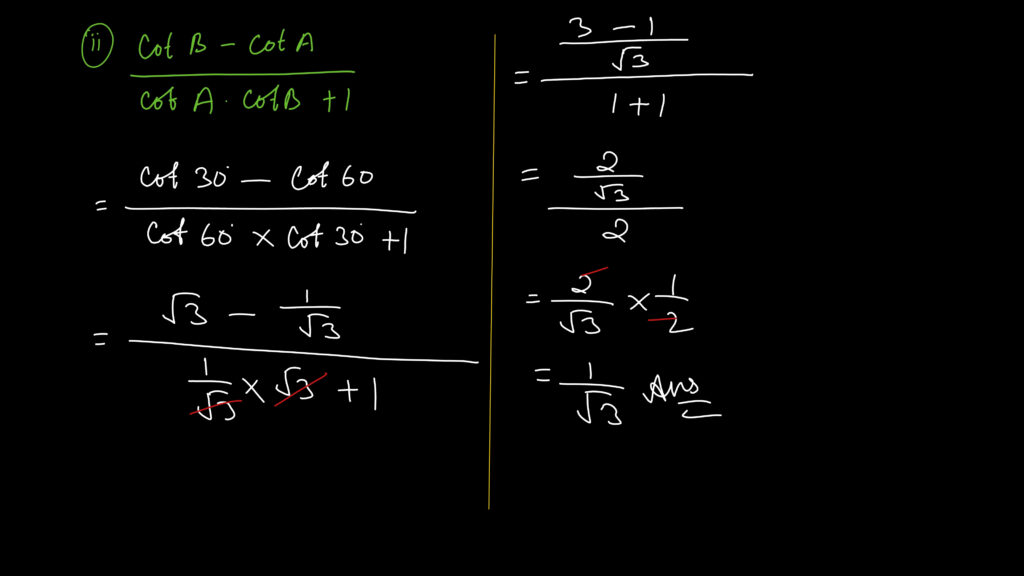 (ii) cot B - cot A
cot A . cot B + 1
= cot 30° - cot 60
cot 60° × cot 30° + 1
= √3 - 1/√3
1/√3 × √3 + 1
= 3 - 1
√3
1 + 1
= 2
√3
2
= 2/√3 × 1/2
= 1/√3 Ans